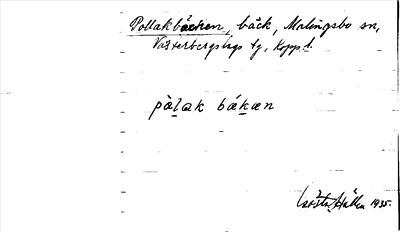 Pollakbäcken, bäck, Malingsbo sn,
Västerbergslags tg, Kopp. l.
pàlak bákæn
Gösta Hallén 1935.